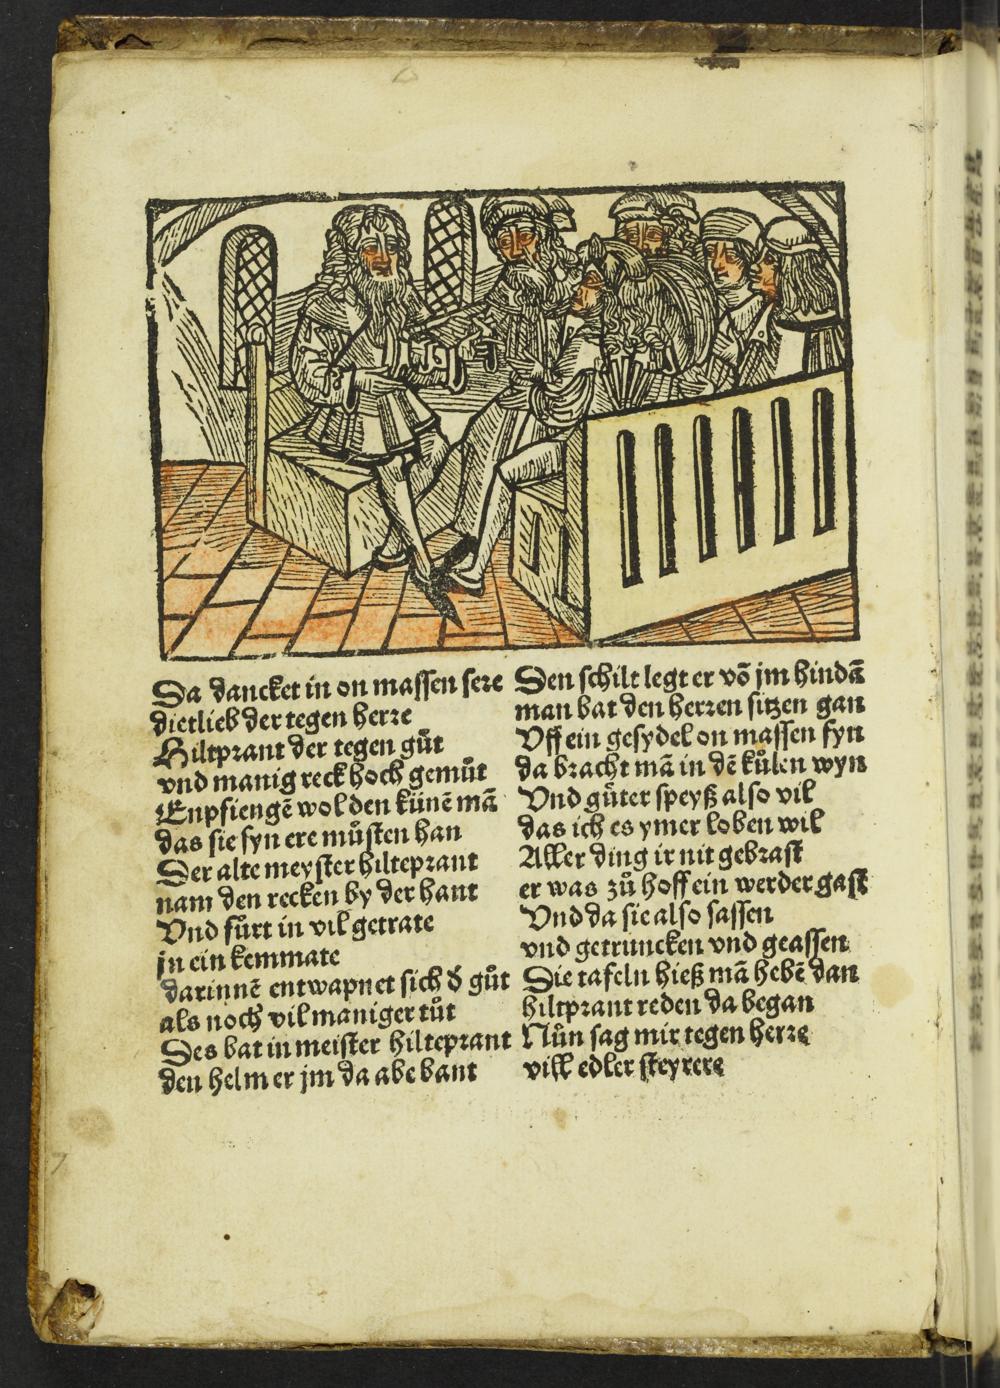 Da dancket in on massen sere
dietlieb der tegen herre
Hiltprant der tegen gůt
vnd manig reck hoch gemůt
Enpfiengē wol den künē mā
das sie syn ere můsten han
Der alte meyster hilteprant
nam den recken by der hant
Vnd fůrt in vil getrate
jn ein kemmate
darinnē entwapnet sich d̕ gůt
als noch vil maniger tůt
Des bat in meister hilteprant
den helm er jm da abe bant
Den schilt legt er vō jm hindā
man bat den herren sitzen gan
Vff ein gesydel on massen fyn
da bracht mā in dē kůlen wyn
Vnd gůter speyß also vil
das ich es ymer loben wil
Aller ding ir nit gebrast
er was zů hoff ein werder gast
Vnd da sie also sassen
vnd getruncken vnd geassen
Die tafeln hieß mā hebē dan
hiltprant reden da began
Nůn sag mir tegen herre
vill edler steyrere
7